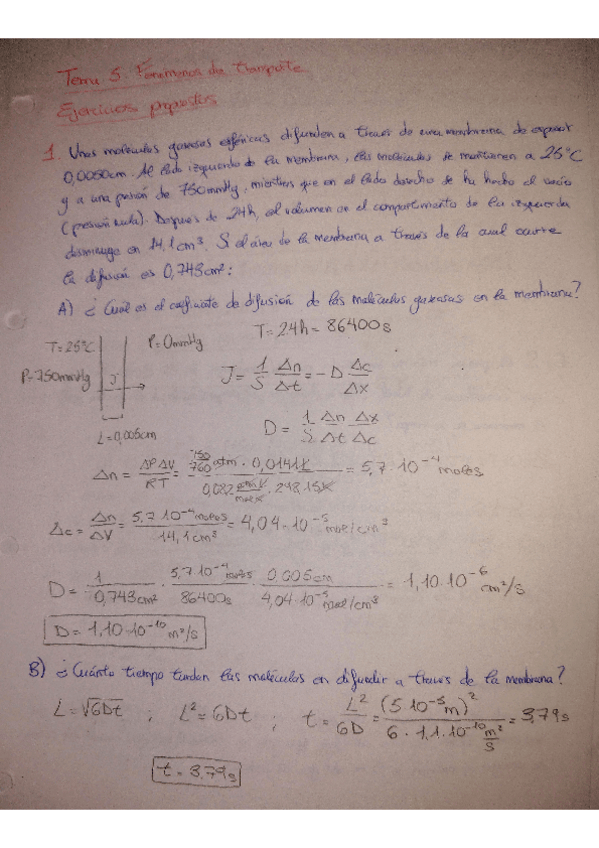 Tema 5: Fenómenos de transporte
Ejercicios propuestos
1. Unas moléculas gaseosas esféricas difunden a través de una membrana de espesor
0,0050cm. Al lado izquierdo de la membrana, las moléculas se mantienen a 25°C
y a una presión de 750mmHg, mientras que en el lado derecho se ha hecho el vacío
(presión nula). Después de 24h, el volumen en el compartimento de la izquierda
disminuye en 14,1cm³. Si el área de la membrana a través de la cual ocurre
la difusión es 0,743cm²:
A) ¿Cuál es el coeficiente de difusión de las moléculas gaseosas en la membrana?
T = 24h = 86400s
T=25°C P=0mmHg
P=750mmHg J
J = 1/S Δn/Δt = -D Δc/Δx
L=0,005cm
D = 1/S Δn/Δt Δx/Δc
Δn = ΔP ΔV/RT = 750/760 atm · 0,0141L / 0,082 atm·L/mol·K · 298.15K = 5,7·10⁻⁴ moles
Δc = Δn/ΔV = 5,7·10⁻⁴moles/14,1cm³ = 4,04·10⁻⁵ mol/cm³
D = 1/0,743cm² · 5,7·10⁻⁴moles/86400s · 0.005cm/4,04·10⁻⁵mol/cm³ = 1,10·10⁻⁶ cm²/s
D = 1,10·10⁻¹⁰ m²/s
B) ¿Cuánto tiempo tardan las moléculas en difundir a través de la membrana?
L = √6Dt ; L² = 6Dt ; t = L²/6D = (5·10⁻⁵m)²/6·1,1·10⁻¹⁰ m²/s = 3,79s
t = 3,79s